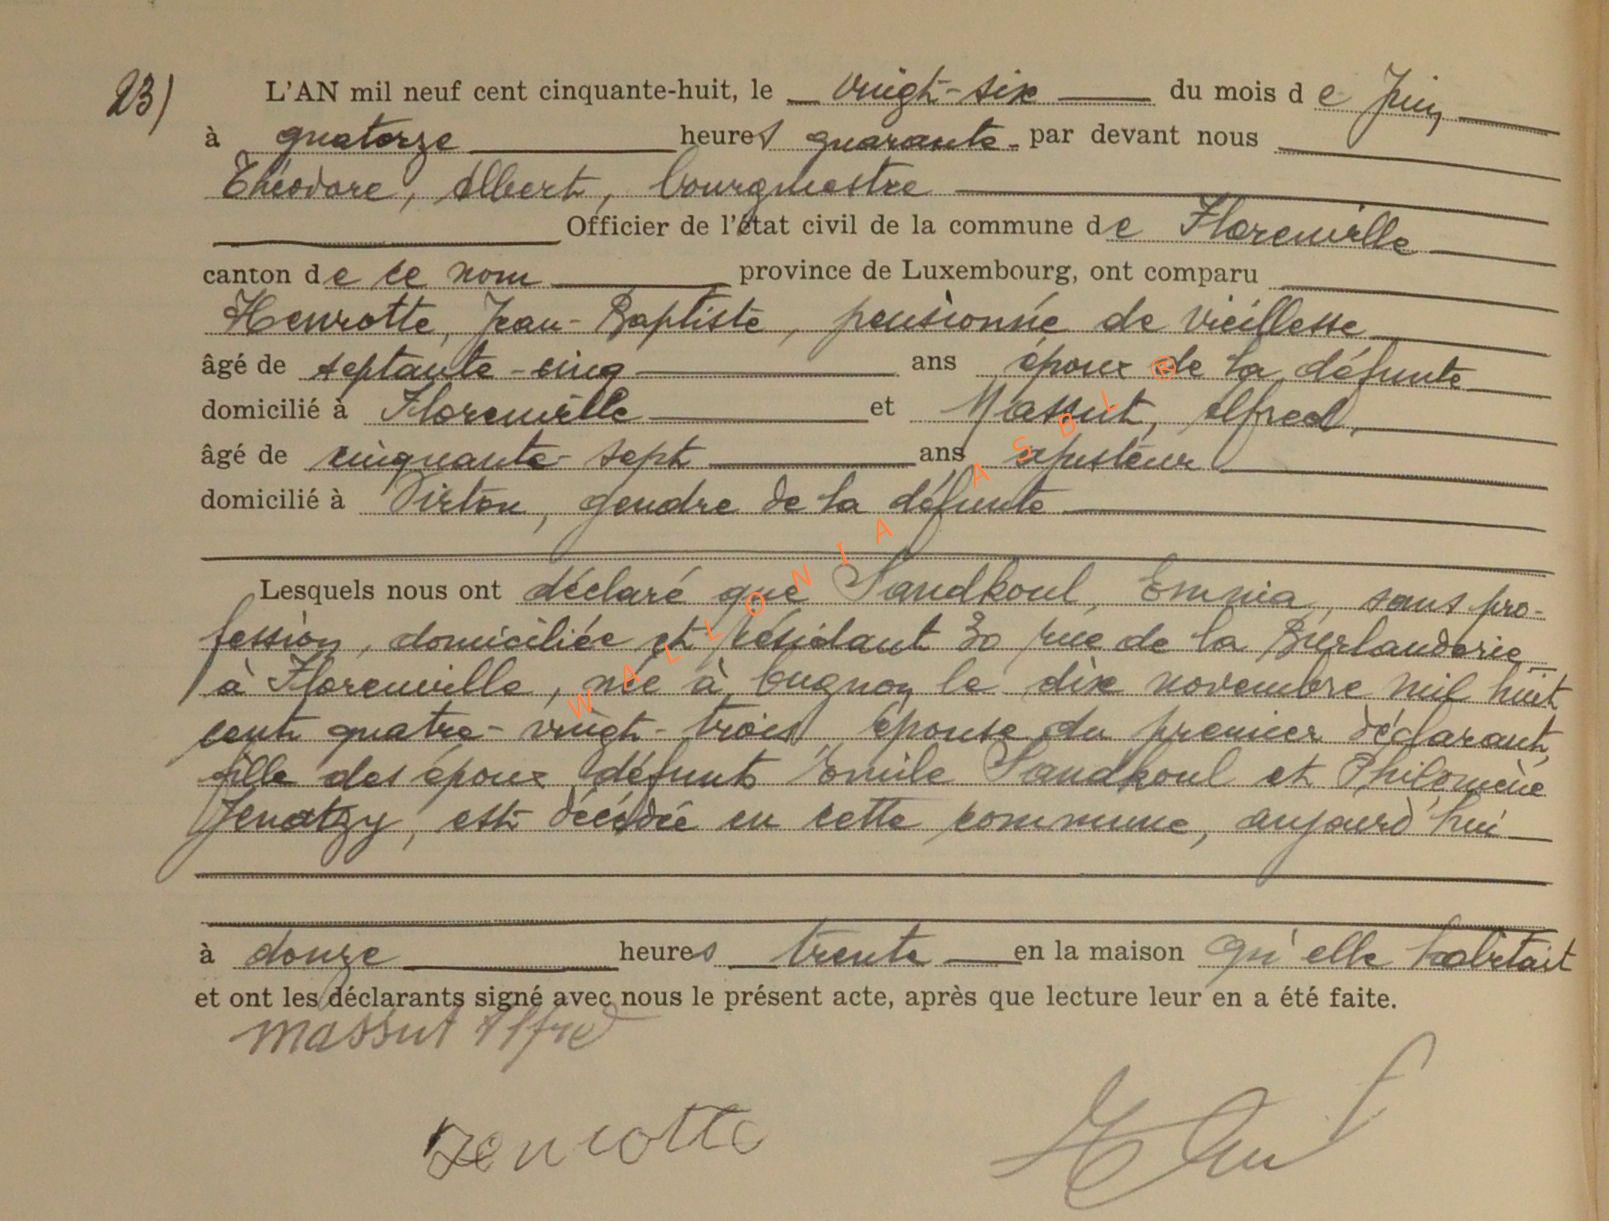 23) L'AN mil neuf cent cinquante-huit, le vingt-six du mois de Juin
à quatorze heures quarante par devant nous
Théodore, Albert, bourgmestre
Officier de l'état civil de la commune de Florenville
canton de ce nom province de Luxembourg, ont comparu
Henrotte, Jean-Baptiste, pensionné de vieillesse
âgé de septante-cinq ans époux de la défunte
domicilié à Florenville et Massut, Alfred,
âgé de cinquante-sept ans ajusteur
domicilié à Virton, gendre de la défunte
Lesquels nous ont déclaré que Sandkoul, Emma, sans pro-
fession, domiciliée et résidant 30 rue de la
à Florenville, née à Cugnon le dix novembre mil huit
cent quatre-vingt-trois épouse du premier déclarant,
fille des époux défunts Emile Sandkoul et Philomène
Jenatzy, est décédée en cette commune, aujourd'hui
à douze heures trente en la maison qu'elle habitait
et ont les déclarants signé avec nous le présent acte, après que lecture leur en a été faite.
massut Alfred
Henrotte
WALLONIA ASBL ®